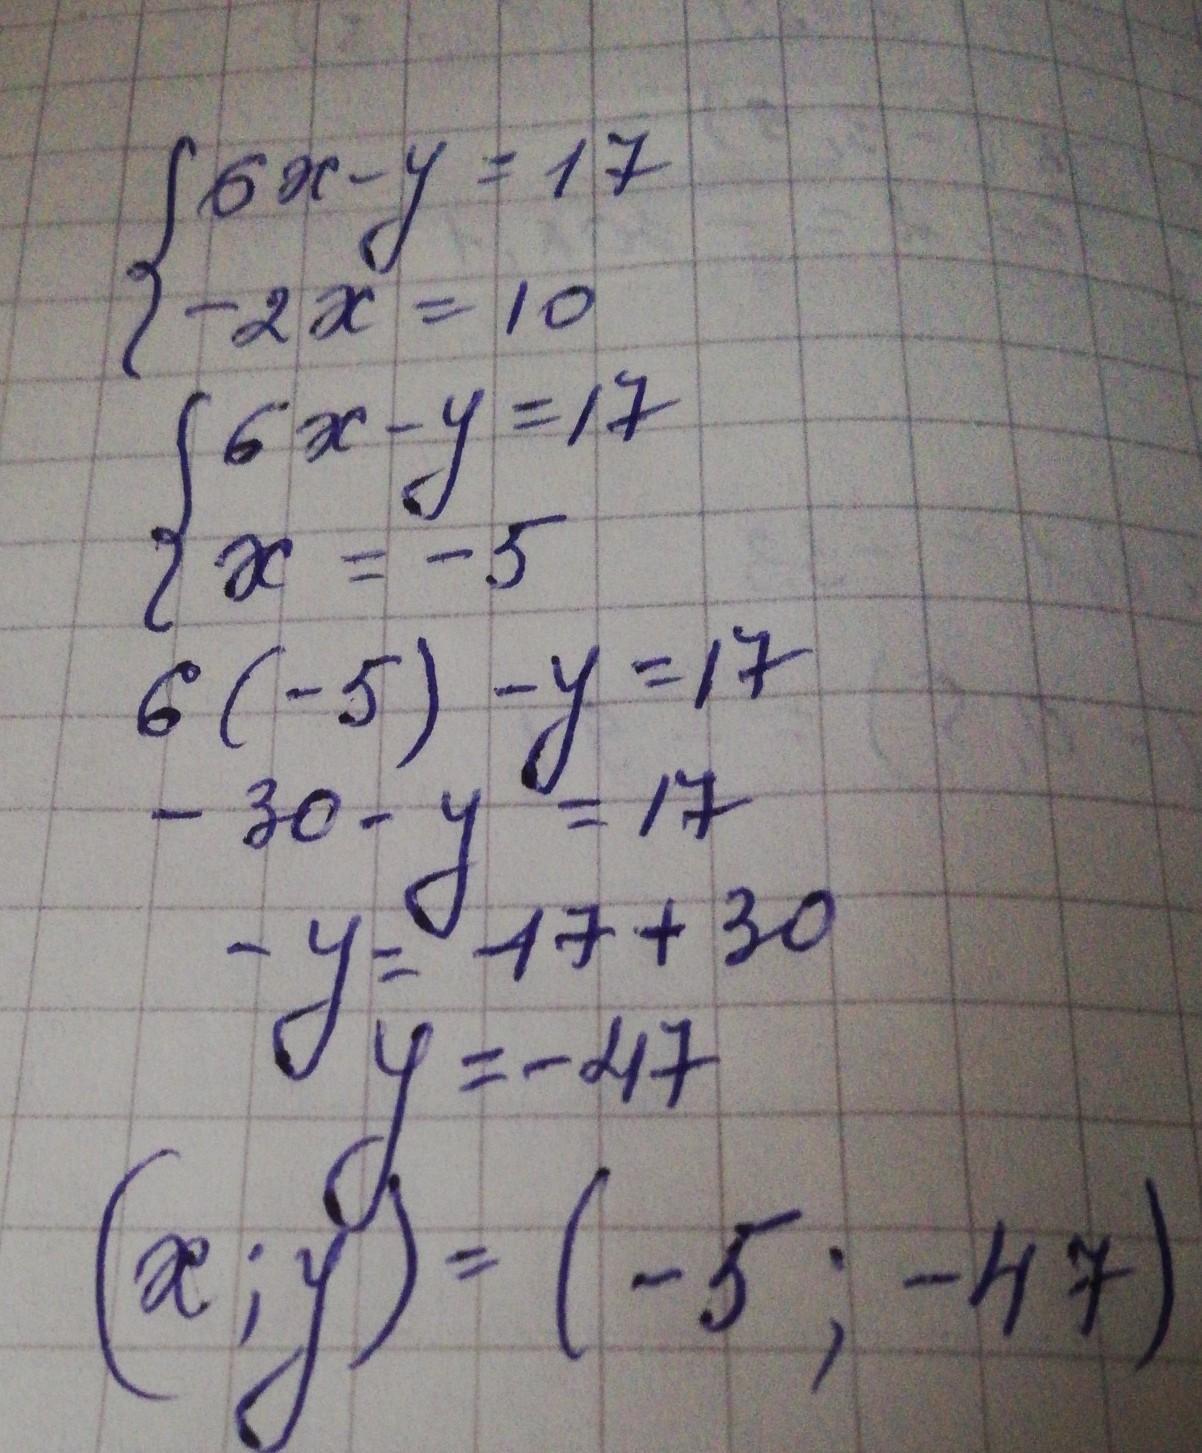 { 6x - y = 17
- 2x = 10
{ 6x - y = 17
x = - 5
6 (-5) - y = 17
- 30 - y = 17
- y = 17 + 30
y = - 47
(x ; y) = (-5 ; -47)